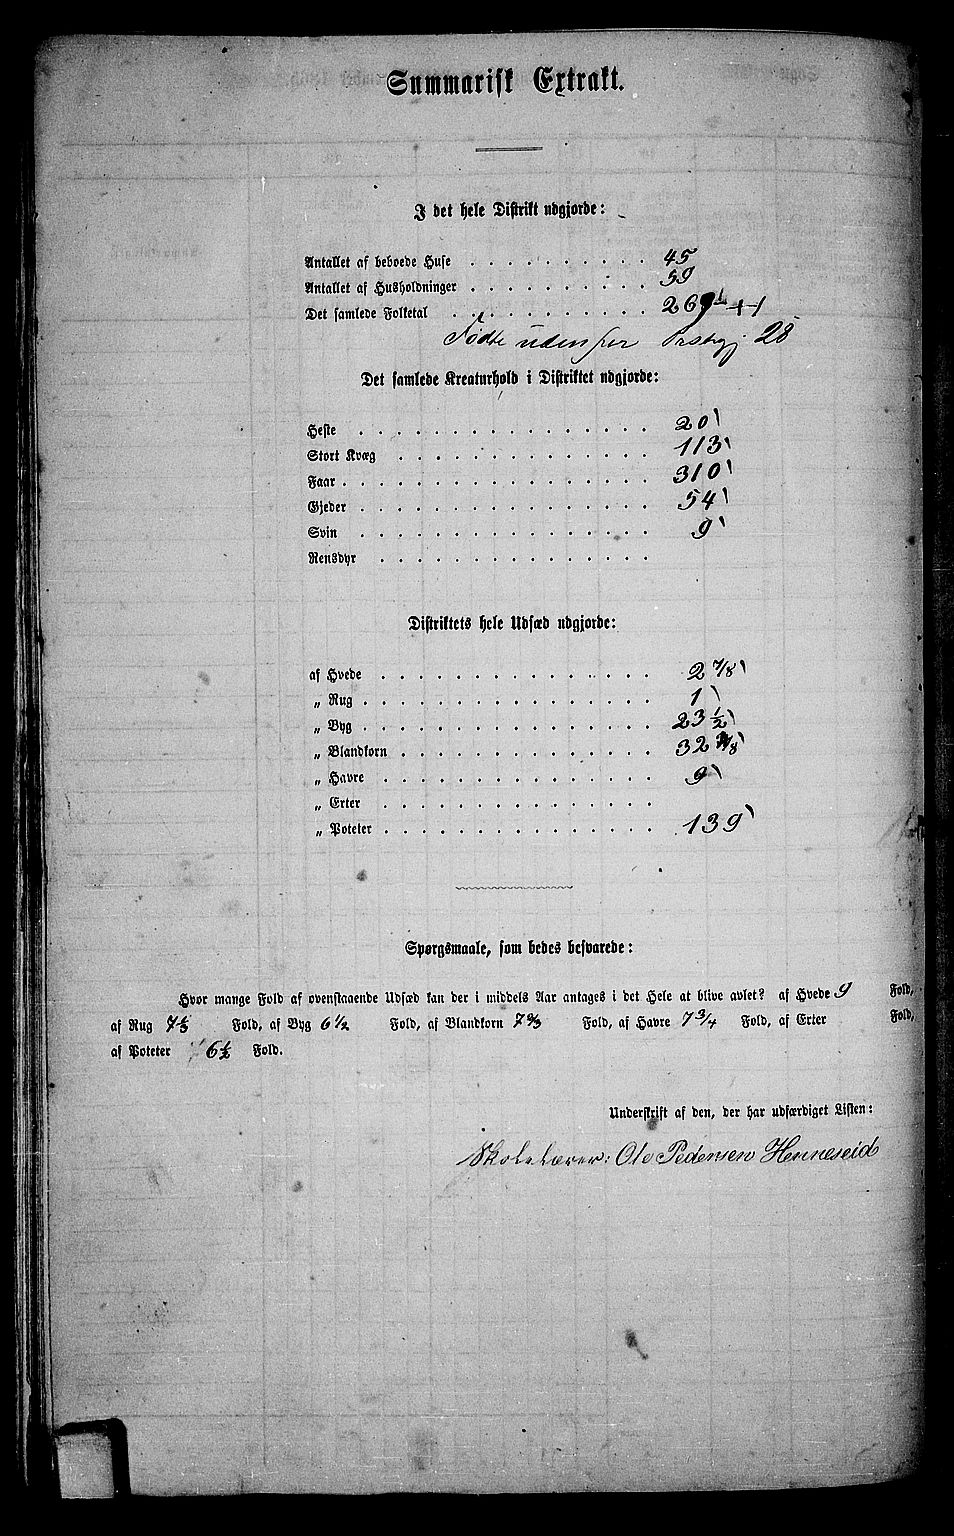 Summarisk Extrakt.
I det hele Distrikt udgjorde:
Antallet af beboede Huse . . . . . . . . . . 45
Antallet af Husholdninger . . . . . . . . . . 59
Det samlede Folketal . . . . . . . . . . 269
Fødte udenfor Præstegj 28
Det samlede Kreaturhold i Distriktet udgjorde:
Heste . . . . . . . . . . 20
Stort Kvæg . . . . . . . . . . 113
Faar . . . . . . . . . . 310
Gjeder . . . . . . . . . . 54
Svin . . . . . . . . . . 9
Rensdyr . . . . . . . . . .
Distriktets hele Udsæd udgjorde:
af Hvede . . . . . . . . . . 2 7/8
„ Rug . . . . . . . . . . 1
„ Byg . . . . . . . . . . 23 1/2
„ Blandkorn . . . . . . . . . . 32 /8
„ Havre . . . . . . . . . . 9
„ Erter . . . . . . . . . .
„ Poteter . . . . . . . . . . 139
Spørgsmaale, som bedes besvarede:
Hvor mange Fold af ovenstaaende Udsæd kan der i middels Aar antages i det Hele at blive avlet? af Hvede 9 Fold,
af Rug 7 Fold, af Byg 6 1/2 Fold, af Blandkorn 7 Fold, af Havre 7 3/4 Fold, af Erter Fold,
af Poteter 6 1/2 Fold.
Underskrift af den, der har udfærdiget Listen:
Skolelærer: Ole Pedersen Henneseid